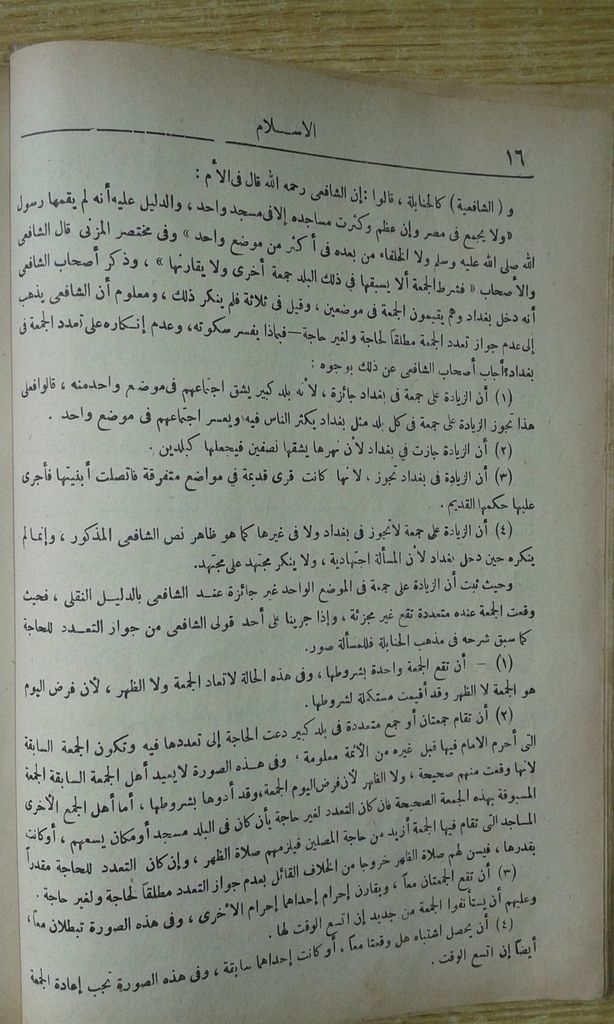 الاســلام
١٦
و ( الشافعية ) كالحنابلة ، قالوا : إن الشافعى رحمه الله قال فى الأم :
«ولا يجمع فى مصر وإن عظم وكثرت مساجده إلا فى مسجد واحد ، والدليل عليه أنه لم يقمها رسول
الله صلى الله عليه وسلم ولا الخلفاء من بعده فى أكثر من موضع واحد » وفى مختصر المزنى قال الشافعى
والأصحاب « فشرط الجمعة ألا يسبقها فى ذلك البلد جمعة أخرى ولا يقارنها » ، وذكر أصحاب الشافعى
أنه دخل بغداد وهم يقيمون الجمعة فى موضعين ، وقيل فى ثلاثة فلم ينكر ذلك ، ومعلوم أن الشافعى يذهب
إلى عدم جواز تعدد الجمعة مطلقاً لحاجة ولغير حاجة - فبماذا يفسر سكوته، وعدم إنكاره على تعدد الجمعة فى
بغداد؟ أجاب أصحاب الشافعى عن ذلك بوجوه :
(١) أن الزيادة على جمعة فى بغداد جائزة ، لأنه بلد كبير يشق اجتماعهم فى موضع واحد منه ، قالوا فعلى
هذا تجوز الزيادة على جمعة فى كل بلد مثل بغداد يكثر الناس فيه ويعسر اجتماعهم فى موضع واحد .
(٢) أن الزيادة جازت فى بغداد لأن نهرها يشقها نصفين فيجعلها كبلدين .
(٣) أن الزيادة فى بغداد تجوز ، لانها كانت قرى قديمة فى مواضع متفرقة فاتصلت أبنيتها فأجرى
عليها حكمها القديم .
(٤) أن الزيادة على جمعة لاتجوز فى بغداد ولا فى غيرها كما هو ظاهر نص الشافعى المذكور ، وإنما لم
ينكره حين دخل بغداد لأن المسألة اجتهادية ، ولا ينكر مجتهد على مجتهد.
وحيث ثبت أن الزيادة على جمعة فى الموضع الواحد غير جائزة عند الشافعى بالدليل النقلى ، فحيث
وقعت الجمعة عنده متعددة تقع غير مجزئة ، وإذا جرينا على أحد قولى الشافعى من جواز التعدد للحاجة
كما سبق شرحه فى مذهب الحنابلة فللمسألة صور.
(١) - أن تقع الجمعة واحدة بشروطها ، وفى هذه الحالة لاتعاد الجمعة ولا الظهر ، لأن فرض اليوم
هو الجمعة لا الظهر وقد أقيمت مستكملة لشروطها .
(٢) أن تقام جمعتان أو جمع متعددة فى بلد كبير دعت الحاجة إلى تعددها فيه وتكون الجمعة السابقة
التى أحرم الامام فيها قبل غيره من الأئمة معلومة ، وفى هذه الصورة لايعيد أهل الجمعة السابقة الجمعة
لانها وقعت منهم صحيحة ، ولا الظهر لأن فرض اليوم الجمعة، وقد أدوها بشروطها ، أما أهل الجمع الأخرى
المسبوقة بهذه الجمعة الصحيحة فان كان التعدد لغير حاجة بأن كان فى البلد مسجد أو مكان يسعهم ، أو كانت
المساجد التى تقام فيها الجمعة أزيد من حاجة المصلين فيلزمهم صلاة الظهر ، وإن كان التعدد للحاجة مقدراً
بقدرها ، فيسن لهم صلاة الظهر خروجا من الخلاف القائل بعدم جواز التعدد مطلقاً لحاجة ولغير حاجة .
(٣) أن تقع الجمعتان معاً ، ويقارن إحرام إحداهما إحرام الأخرى ، وفى هذه الصورة تبطلان معاً ،
وعليهم أن يستأنفوا الجمعة من جديد إن اتسع الوقت لها .
(٤) أن يحصل اشتباه هل وقعتا معاً ، أو كانت إحداهما سابقة ، وفى هذه الصورة تجب إعادة الجمعة
أيضاً إن اتسع الوقت .